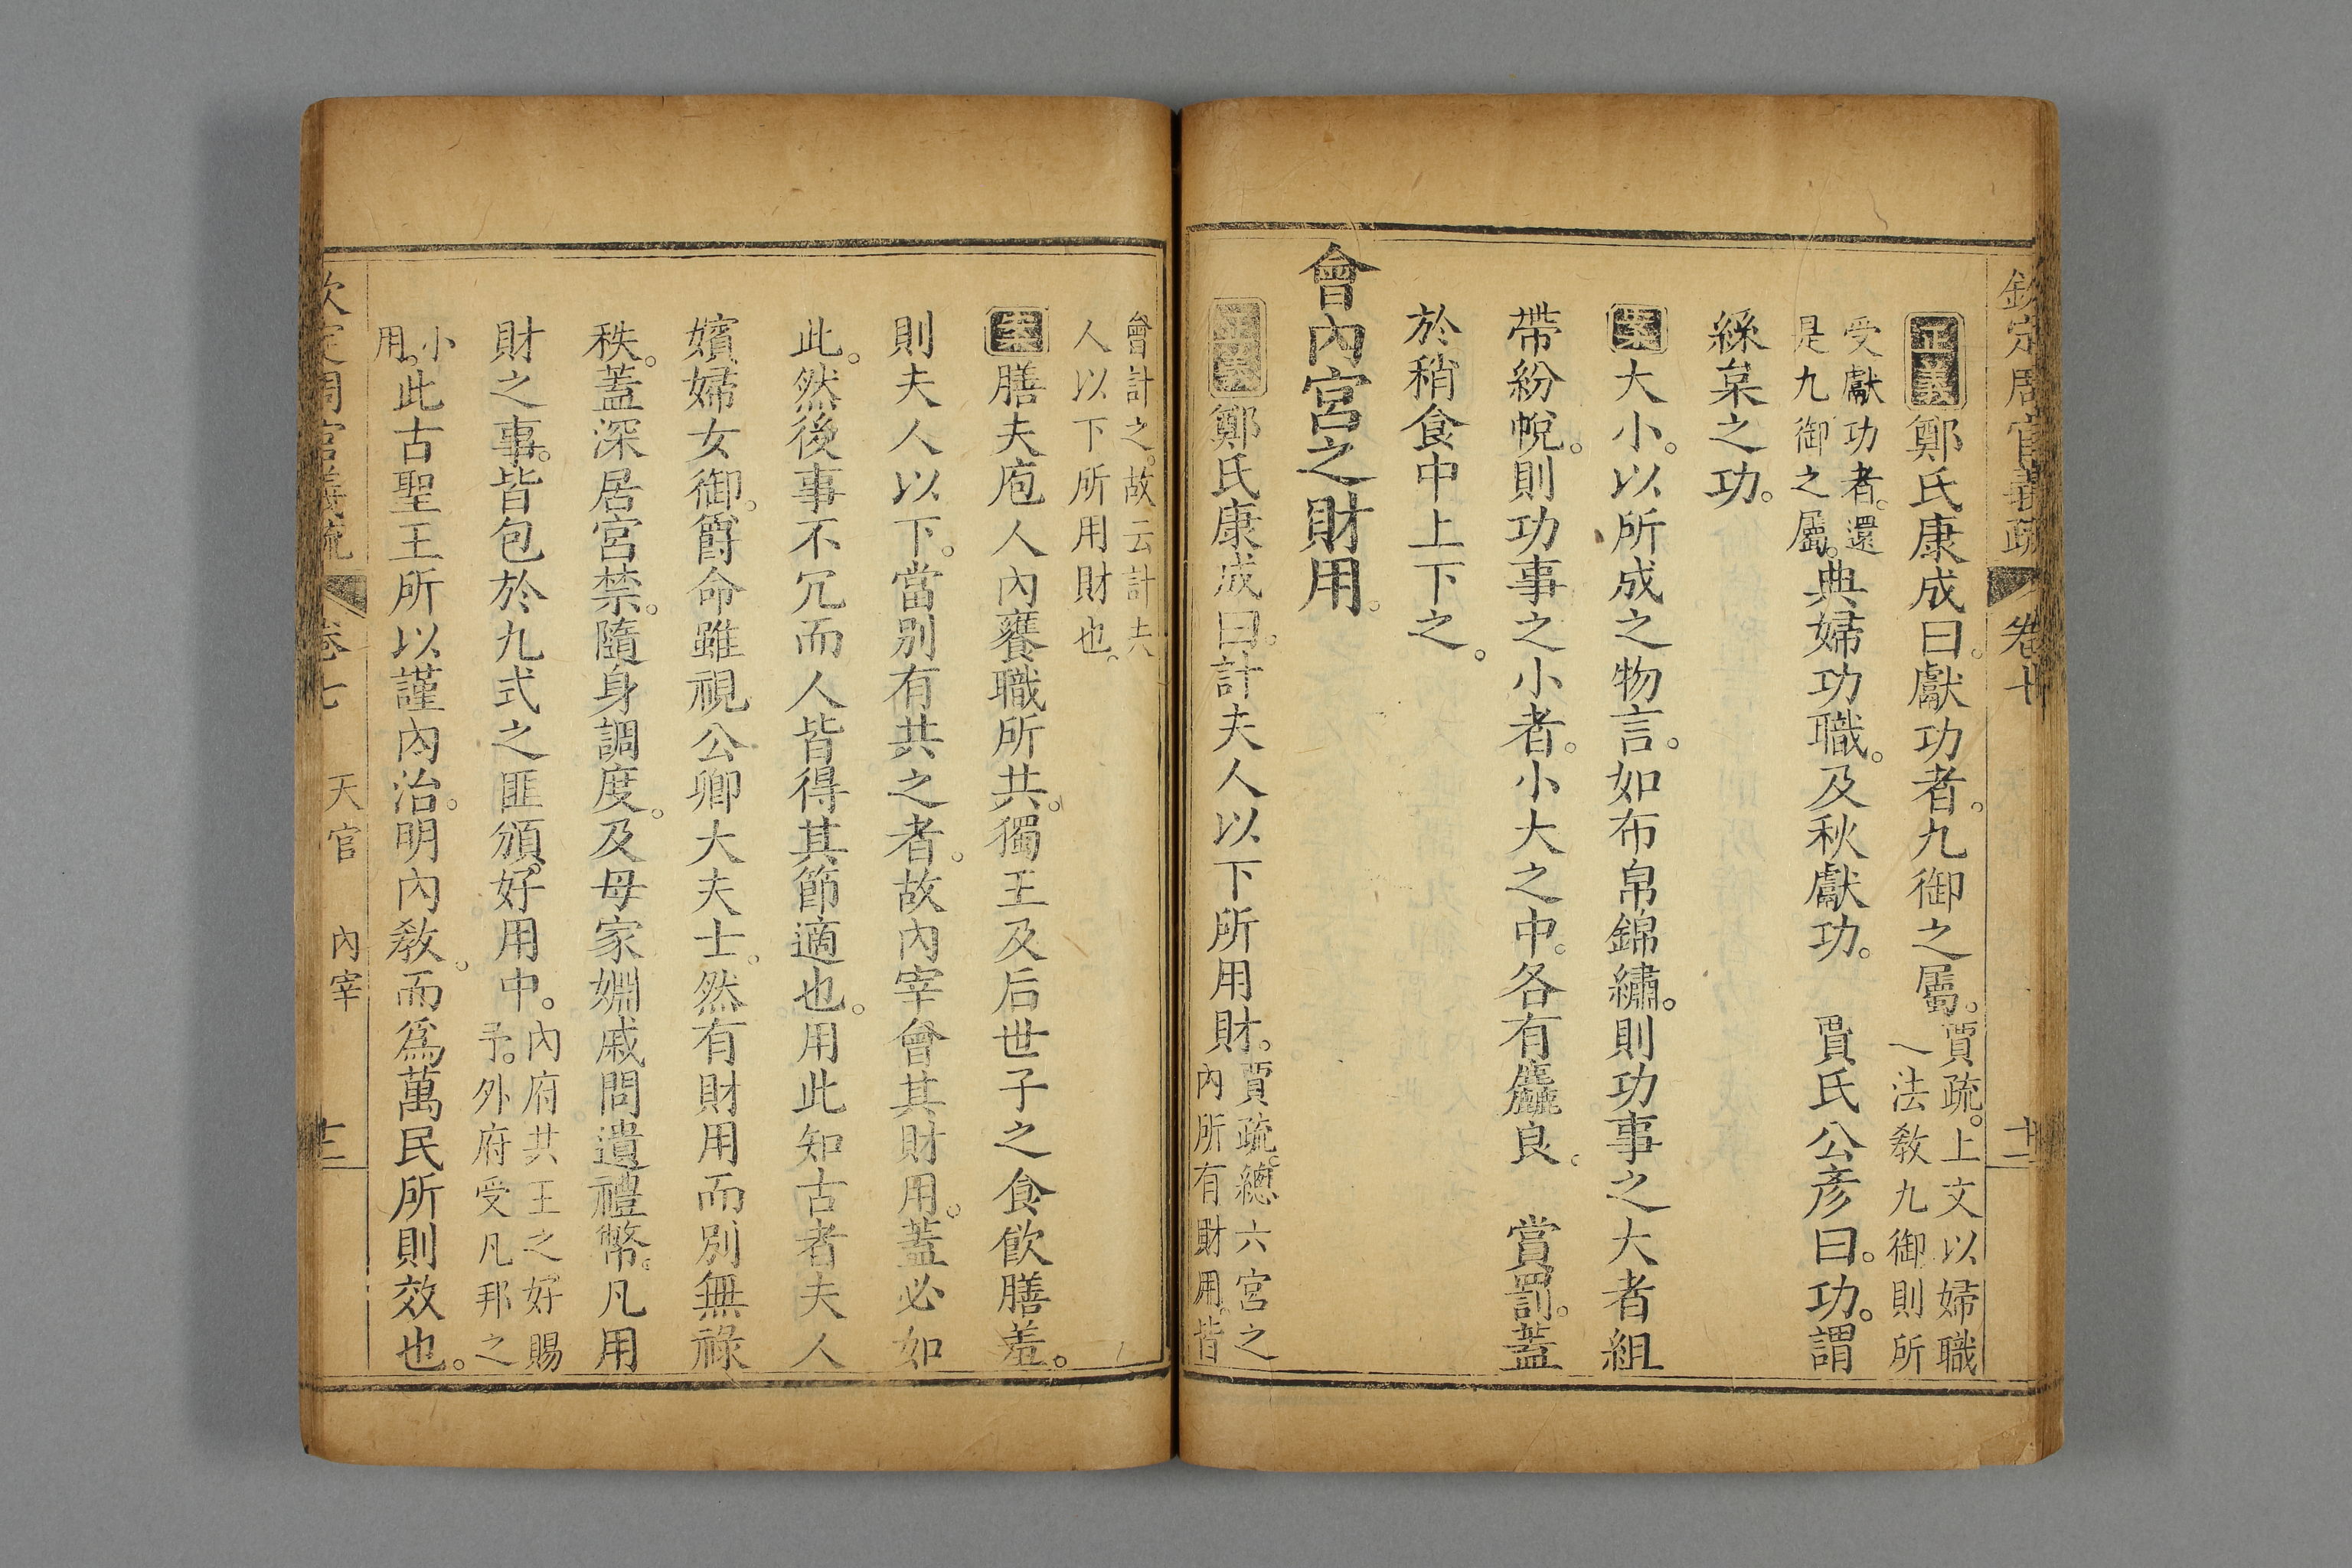 欽定周官義疏 卷七 十二
正義鄭氏康成曰。獻功者。九御之屬。賈疏。上文以婦職一法教九御則所
受獻功者。還是九御之屬。典婦功職。及秋獻功。 賈氏公彥曰。功。謂
絲枲之功。
案大小。以所成之物言。如布帛錦繡。則功事之大者組
帶紛帨。則功事之小者。小大之中。各有麤良。 賞罰。蓋
於稍食中上下之。
會內宮之財用。
正義鄭氏康成曰。計夫人以下所用財。賈疏。總六宮之內所有財用。皆
會計之。故云計夫人以下所用財也。
案膳夫庖人內饔職所共。獨王及后世子之食飲膳羞。
則夫人以下。當別有共之者。故內宰會其財用。蓋必如
此。然後事不冗而人皆得其節適也。用此知古者夫人
嬪婦女御。爵命雖視公卿大夫士。然有財用而別無祿
秩。蓋深居宮禁。隨身調度。及母家婣戚問遺禮幣。凡用
財之事。皆包於九式之匪頒。好用中。內府共王之好賜予。外府受凡邦之
小用。此古聖王所以謹內治。明內教。而爲萬民所則效也。
欽定周官義疏 卷七 天官 內宰 十三